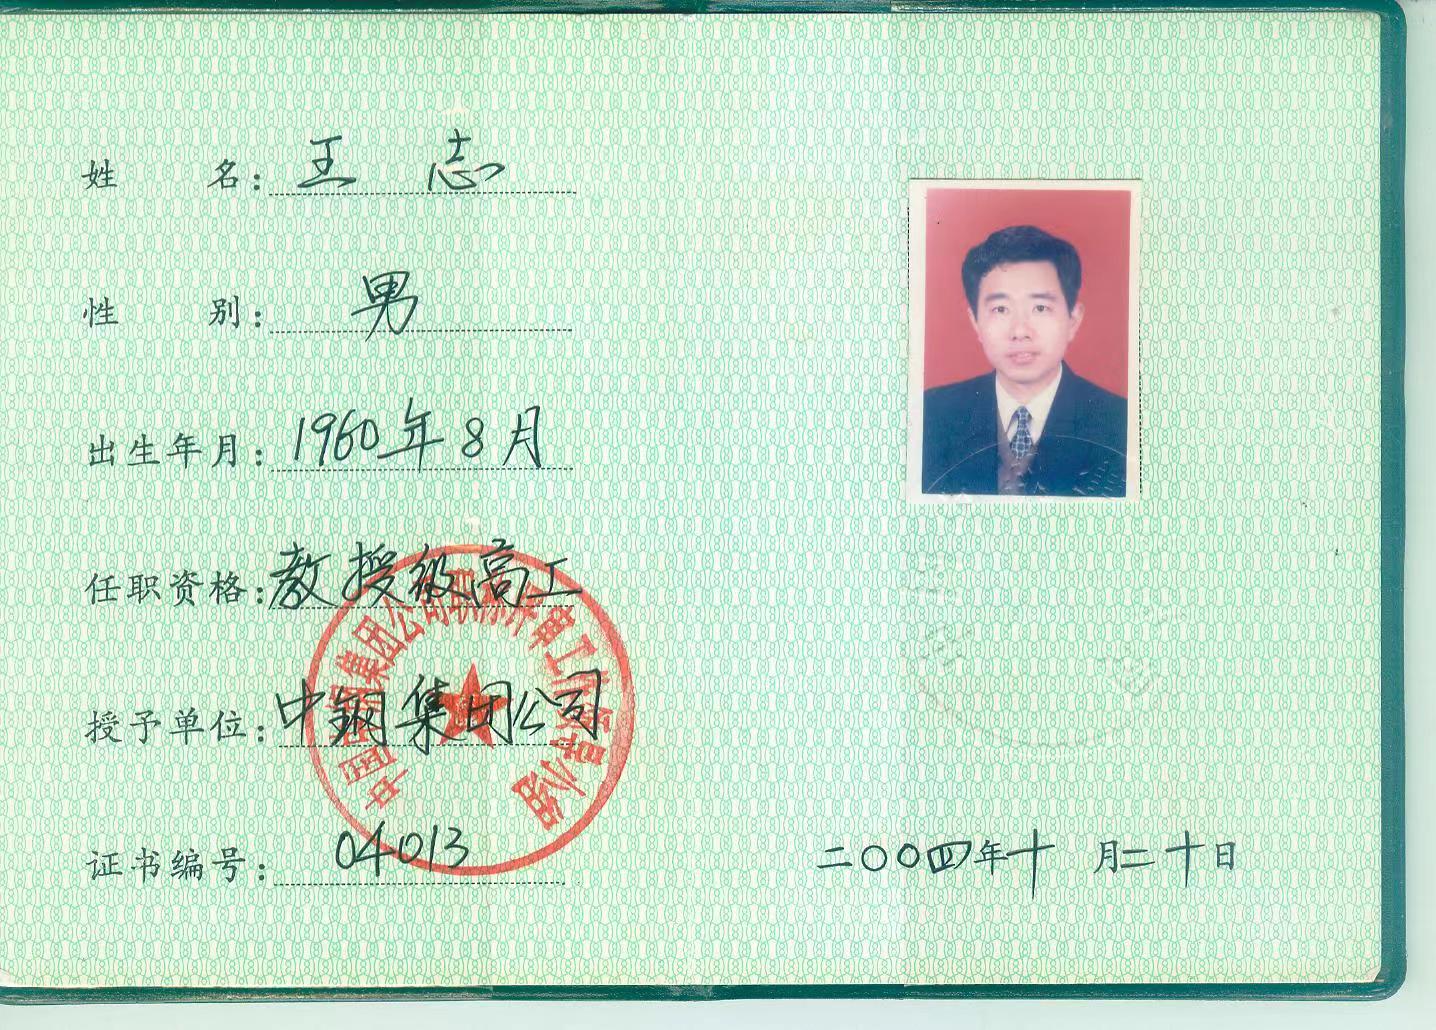 姓 名: 王 志
性 别: 男
出生年月: 1960年8月
任职资格: 教授级高工
授予单位: 中钢集团公司
证书编号: 04013
中国中钢集团公司职称评审工作领导小组
二〇〇四年十 月二十日